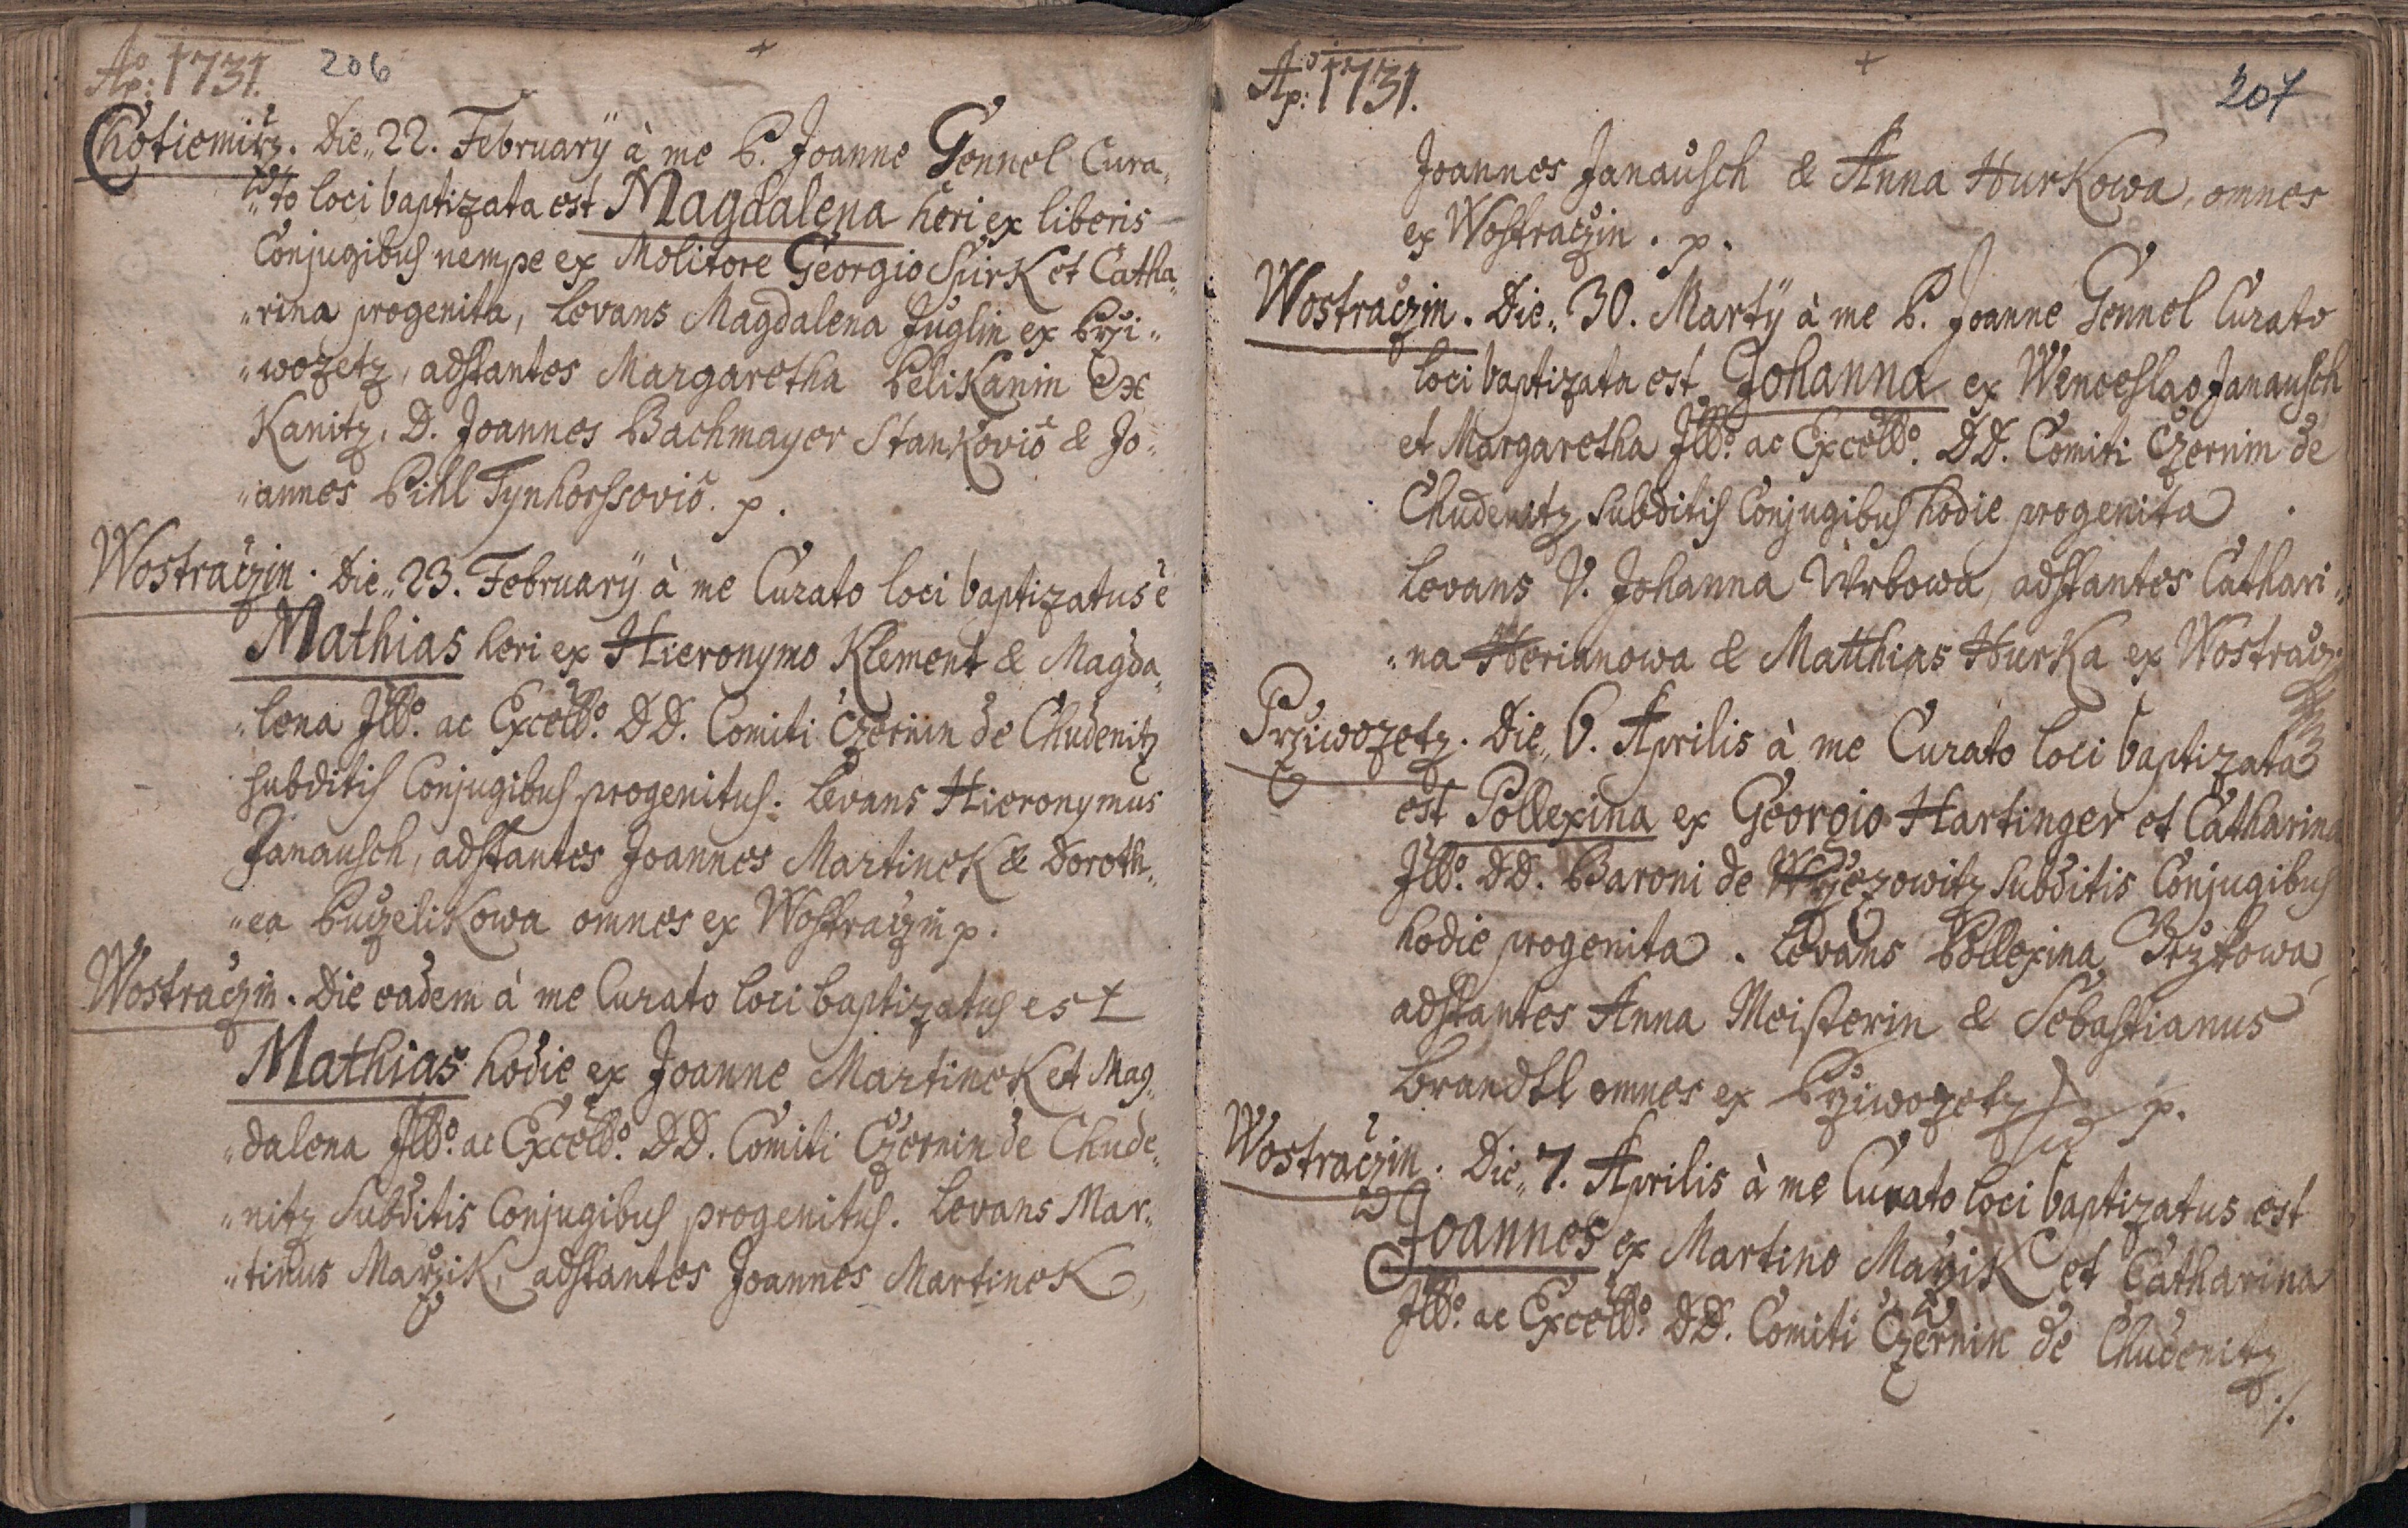 Ao: 1731. 206
Chotiemirz. Die„ 22. Februarÿ à me P. Joanne Gennel Cura„
„to loci baptizata est Magdalena heri ex liberis
Conjugibus nempe ex Molitore Georgio Spirk et Catha„
„rina progenita, Levans Magdalena Juglin ex Przi„
„wozetz, adstantes Margaretha Pelikanin Ex
Kanitz, D. Joannes Bachmayer Stanković & Jo„
„annes Pihl Tynhorssović. p.
Wostraczin. Die„ 23. Februarÿ à me Curato loci baptizatus ẽ
Mathias heri ex Hieronymo Klement & Magda„
„lena Illmo. ac Excellmo. DD. Comiti Czernin de Chudenitz
subditis Conjugibus progenitus. Levans Hieronymus
Janausch, adstantes Joannes Martinek & Doroth„
„ea Puczelikowa omnes ex Wostraczin p.
Wostraczin. Die eadem à me Curato loci baptizatus est
Mathias hodie ex Joanne Martinek et Mag„
„dalena Illmo. ac Excellmo. DD. Comiti Czernin de Chude„
„nitz Subditis Conjugibus progenitus. Levans Mar„
„tinus Marzik, adstantes Joannes Martinek,
Ao: 1731. 207
Joannes Janausch & Anna Hurkowa, omnes
ex Wostraczin. p.
Wostraczin. Die„ 30. Martÿ à me P. Joanne Gennel Curato
loci baptizata est Johanna ex Wenceslao Janausch
et Margaretha Illmo. ac Excellmo. DD. Comiti Czernin de
Chudenitz Subditis Conjugibus hodie progenita.
Levans V. Johanna Wrbowa, adstantes Cathari„
„na Herianowa & Matthias Hurka ex Wostracz.
Przïwozetz. Die„ 6. Aprilis à me Curato loci baptizata
est Pollexina ex Georgio Hartinger et Catharina
Illmo. DD. Baroni de Wrzezowitz subditis Conjugibus
hodie progenita. Levans Pollexina
adstantes Anna Meisterin & Sebastianus
Brandtl omnes ex Przïwozetz p.
Wostraczin. Die„ 7. Aprilis à me Curato loci baptizatus est
Joannes ex Martino Marzik et Catharina
Illmo. ac Excellmo. DD. Comiti Czernin de Chudenitz
./.